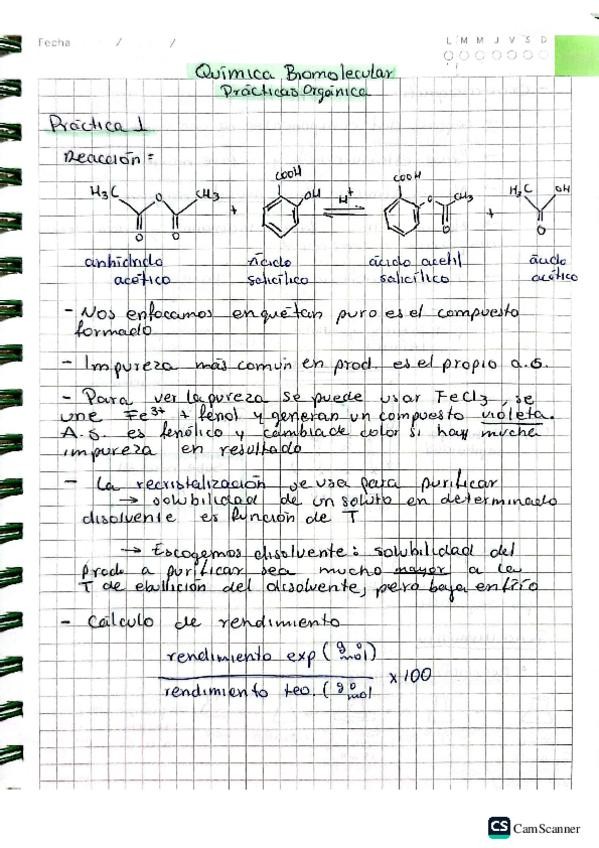 Fecha / /
L M M J V S D
Química Biomolecular
Prácticas Orgánica
Práctica 1
Reacción =
H3C O CH3 O O + COOH OH H+ COOH O CH3 O + H3C OH O
anhídrido ácido ácido acetil ácido
acético salicílico salicílico acético
- Nos enfocamos en qué tan puro es el compuesto
formado
- Impureza más común en prod. es el propio a.s.
- Para ver la pureza se puede usar FeCl3, se
une Fe3+ + fenol y generan un compuesto violeta.
A.s. es fenólico y cambia de color si hay mucha
impureza en resultado
- La recristalización se usa para purificar
→ solubilidad de un soluto en determinado
disolvente es función de T
→ Escogemos disolvente: solubilidad del
prod. a purificar sea mucho mayor a la
T de ebullición del disolvente, pero baja en frío
- Cálculo de rendimiento
rendimiento exp (g o mol)
rendimiento teo. (g o mol
x 100
CS CamScanner